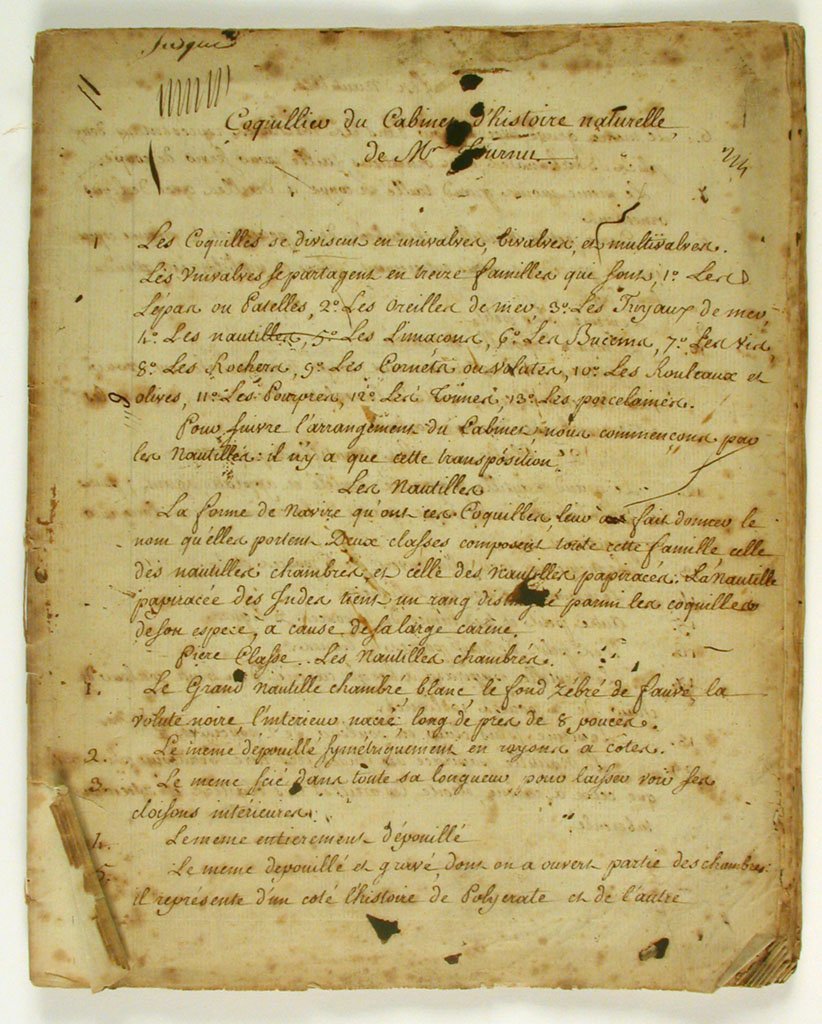 Coquillier du Cabinet d'histoire naturelle
de Mr
1 Les Coquilles se divisent en univalves, bivalves, et multivalves.
Les Univalves se partagent en treize familles que sont, 1o. Les
Lepas ou Patelles, 2o. Les oreilles de mer, 3o. Les Tuyaux de mer,
4o. Les nautilles, 5o. Les Limaçons, 6o. Les Buccins, 7o. Les vis,
8o. Les Rochers, 9o. Les Cornets ou volutes, 10o. Les Rouleaux et
olives, 11o. Les Pourpres, 12o. Les Tonnes, 13o. Les porcelaines.
Pour suivre l'arrangement du Cabinet, nous commençons par
les Nautilles: il n'y a que cette transposition.
Les Nautilles
La forme de Navire qu'ont ces Coquilles, leur a fait donner le
nom qu'elles portent. Deux classes composent toute cette famille celle
des nautilles chambrés, et celle des nautilles papiracés. La Nautille
papiracée des Indes tient un rang distingué parmi les coquilles
de son espece, a cause de sa large carine.
Piere Classe.. Les Nautilles chambrés.
1. Le Grand Nautille chambré, blanc, le fond zébré de fauve, la
volute noire, l'interieur nacré, long de près de 8 pouces.
2. Le même dépouillé symétriquement en rayons à cotes.
3. Le meme scié dans toute sa longueur pour laisser voir ses
cloisons intérieures.
4. Le meme entierement dépouillé
5. Le meme depouillé et gravé, dont on a ouvert partie des chambres:
il représente d'un coté l'histoire de Polycrate et de l'autre